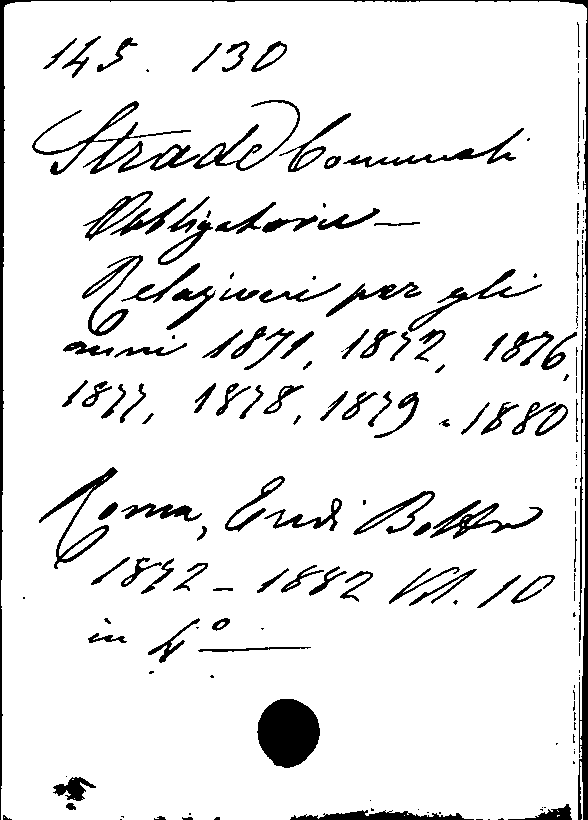 145. 130
Strade Comunali
Obbligatorie —
Relazioni per gli
anni 1871, 1872, 1876,
1877, 1878, 1879 - 1880
Roma, Eredi Botta
1872 - 1882 Vol. 10
in 4° —